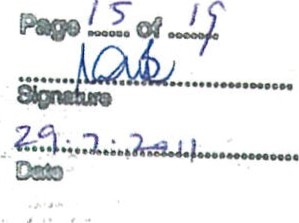 Page 15 of 19
Signature
29.7.2011
Date